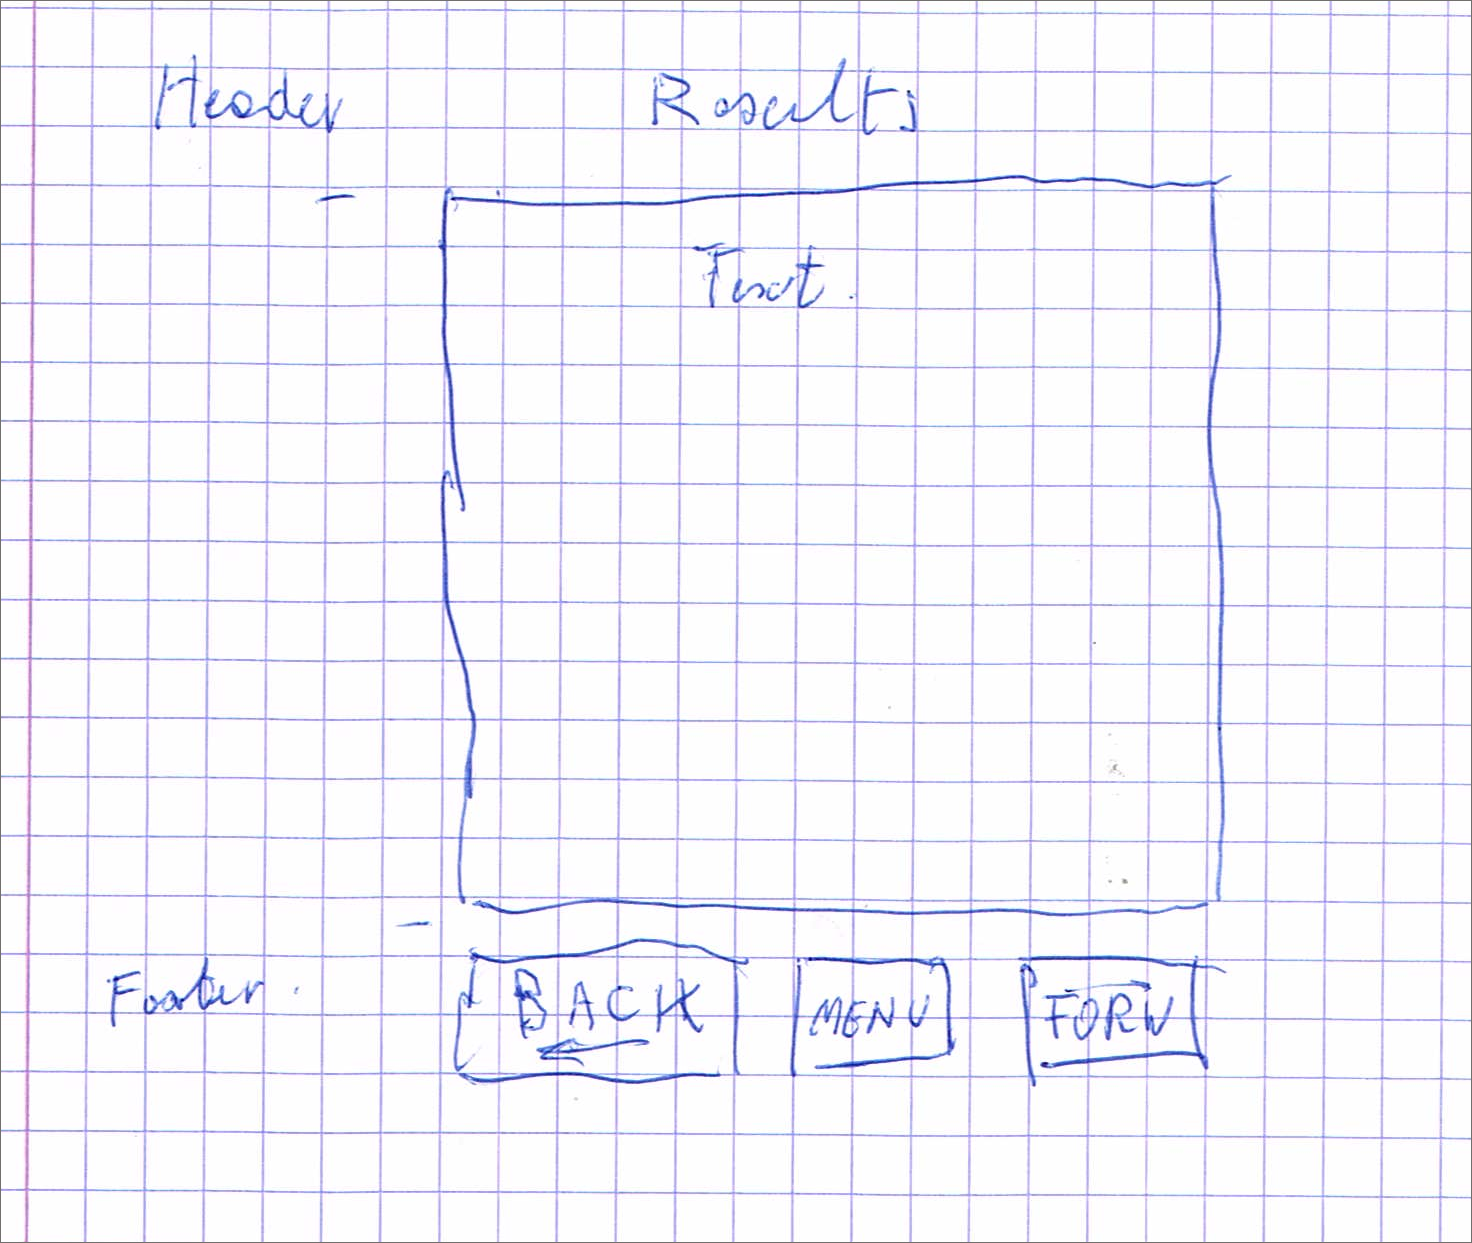 Header Results
Text.
Footer.
BACK MENU FORW